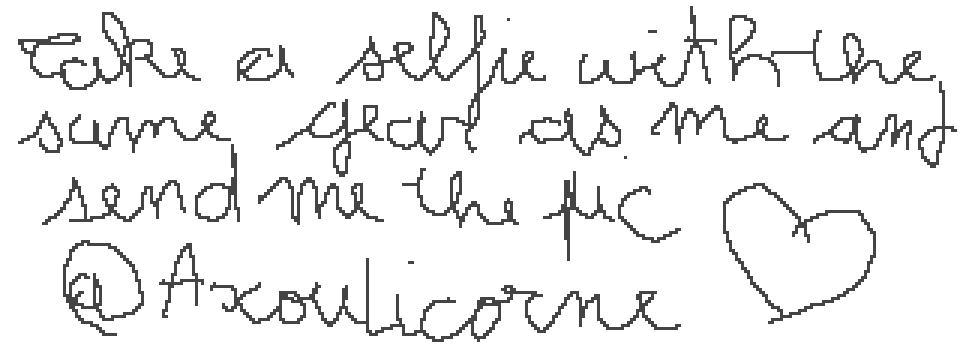 Take a selfie with the
same gear as me and
send me the pic
@Axoulicorne